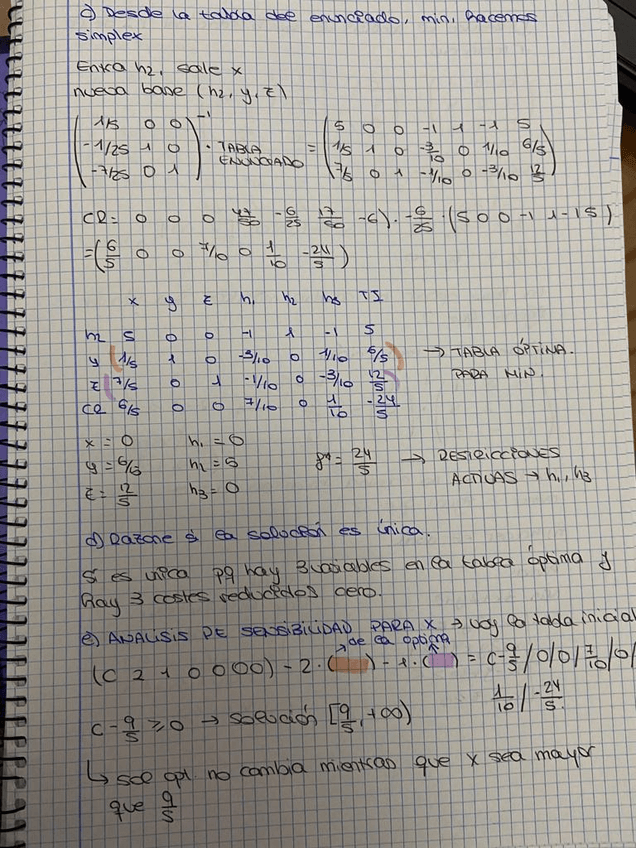 c) Desde la tabla del enunciado, min, hacemos
simplex
Entra h2, sale x
nueva base (h2, y, z)
(1/5 0 0
-1/25 1 0
-7/25 0 1)⁻¹ · TABLA ENUNCIADO = (5 0 0 -1 1 -1 5
1/5 1 0 -3/10 0 1/10 6/5
7/5 0 1 -1/10 0 -3/10 12/5)
CR = 0 0 0 47/50 -6/25 17/50 -6) · -6/25 · (5 0 0 -1 1 -1 5)
= (6/5 0 0 7/10 0 1/10 -24/5)
x y z h1 h2 h3 TI
h2 5 0 0 -1 1 -1 5
y (1/5 1 0 -3/10 0 1/10 6/5) → TABLA ÓPTIMA.
z (7/5 0 1 -1/10 0 -3/10 12/5) PARA MIN.
CR 6/5 0 0 7/10 0 1/10 -24/5
x = 0 h1 = 0
y = 6/5 h2 = 5 f* = 24/5 → RESTRICCIONES
z = 12/5 h3 = 0 ACTIVAS → h1, h3
d) Razone si la solución es única.
Si es unica pq hay 3 variables en la tabla óptima y
hay 3 costes reducidos cero.
e) ANALISIS DE SENSIBILIDAD PARA X → voy la tabla inicial
→ de la óptima
(C 2 1 0 0 0 0) - 2 · ( ) - 1 · ( ) = C-9/5 / 0 / 0 / 7/10 / 0 /
1/10 / -24/5
C - 9/5 ≥ 0 → solución [9/5, +∞)
↳ sol opt. no cambia mientras que x sea mayor
que 9/5